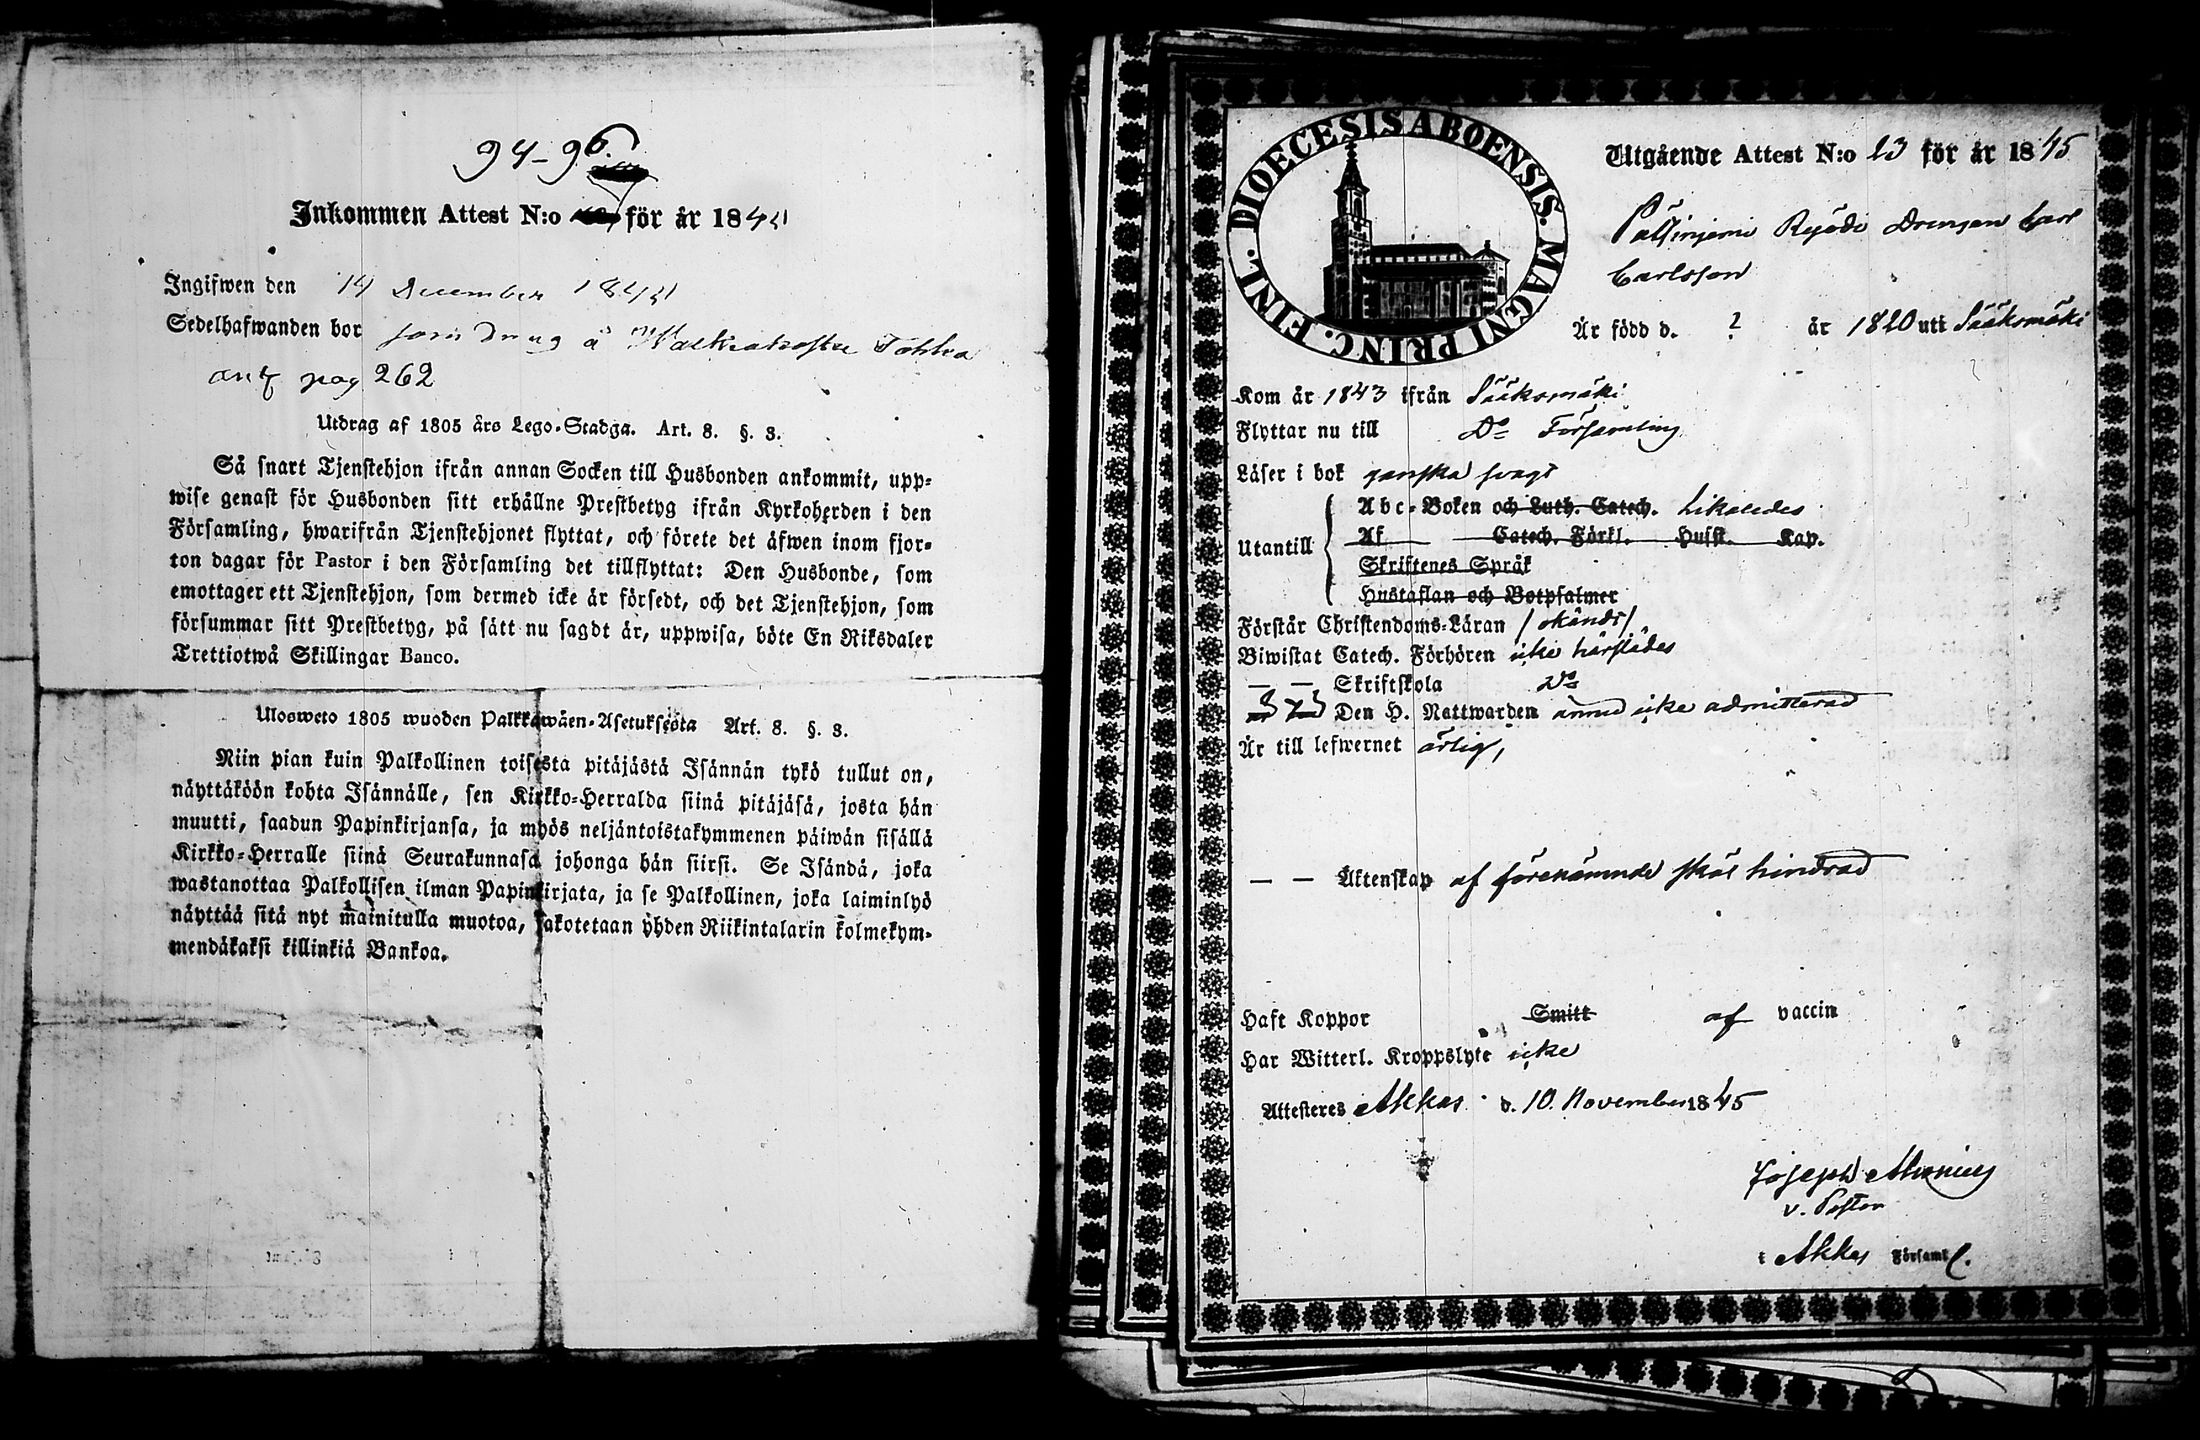 94-96.
Inkommen Attest N:o för år 184
Ingifwen den 14 December 184
Sedelhafwanden bor som dräng å Walkiakoski Tohka
ant pag 262
Utdrag af 1805 års Lego-Stadga. Art. 8. §. 3.
Så snart Tjenstehjon ifrån annan Socken till Husbonden ankommit, upp-
wise genast för Husbonden sitt erhållne Prestbetyg ifrån Kyrkoherden i den
Församling, hwarifrån Tjenstehjonet flyttat, och förete det äfwen inom fjor-
ton dagar för Pastor i den Församling det tillflyttat: Den Husbonde, som
emottager ett Tjenstehjon, som dermed icke är försedt, och det Tjenstehjon, som
försummar sitt Prestbetyg, på sätt nu sagdt är, uppwisa, böte En Riksdaler
Trettiotwå Skillingar Banco.
Ulosweto 1805 wuoden Palkkawäen-Asetuksesta Art. 8. §. 3.
Niin pian kuin Palkollinen toisesta pitäjästä Isännän tykö tullut on,
näyttäköön kohta Isännälle, sen Kirkko-Herralda siinä pitäjäsä, josta hän
muutti, saadun Papinkirjansa, ja myös neljäntoistakymmenen päiwän sisällä
Kirkko-Herralle siinä Seurakunnasa johonga hän siirsi. Se Isändä, joka
wastanottaa Palkollisen ilman Papinkirjata, ja se Palkollinen, joka laiminlyö
näyttää sitä nyt mainitulla muotoa, sakotetaan yhden Riikintalarin kolmekym-
mendäkaksi killinkiä Bankoa.
DIOECESIS ABOENSIS. MAGNI PRINC. FINL.
Utgående Attest N:o 23 för år 1845
Pätsiniemi Ryödi Drengen Carl
Carlsson
Är född d. ? år 1820 uti Sääksmäki
Kom år 1843 ifrån Sääksmäki
Flyttar nu till Do Församling
Läser i bok ganska swagt
Utantill
Abc-Boken och Luth. Catech. Likaledes
Af Catech. Förkl. Husst. Kap.
Skriftenes Språk
Hustaflan och Botpsalmer
Förstår Christendoms-Läran /okändt/
Biwistat Catech. Förhören icke härstädes
— — Skriftskola Do
Den H. Nattwarden ännu icke admitterad
Är till lefwernet ärlig,
— — Äktenskap af förenämnde skäl hindrad
Haft Koppor Smitt af vaccin
Har Witterl. Kroppslyte icke
Attesteres Akkas d. 10. November 1845
Joseph
v. Pastor
i Akkas Församl.